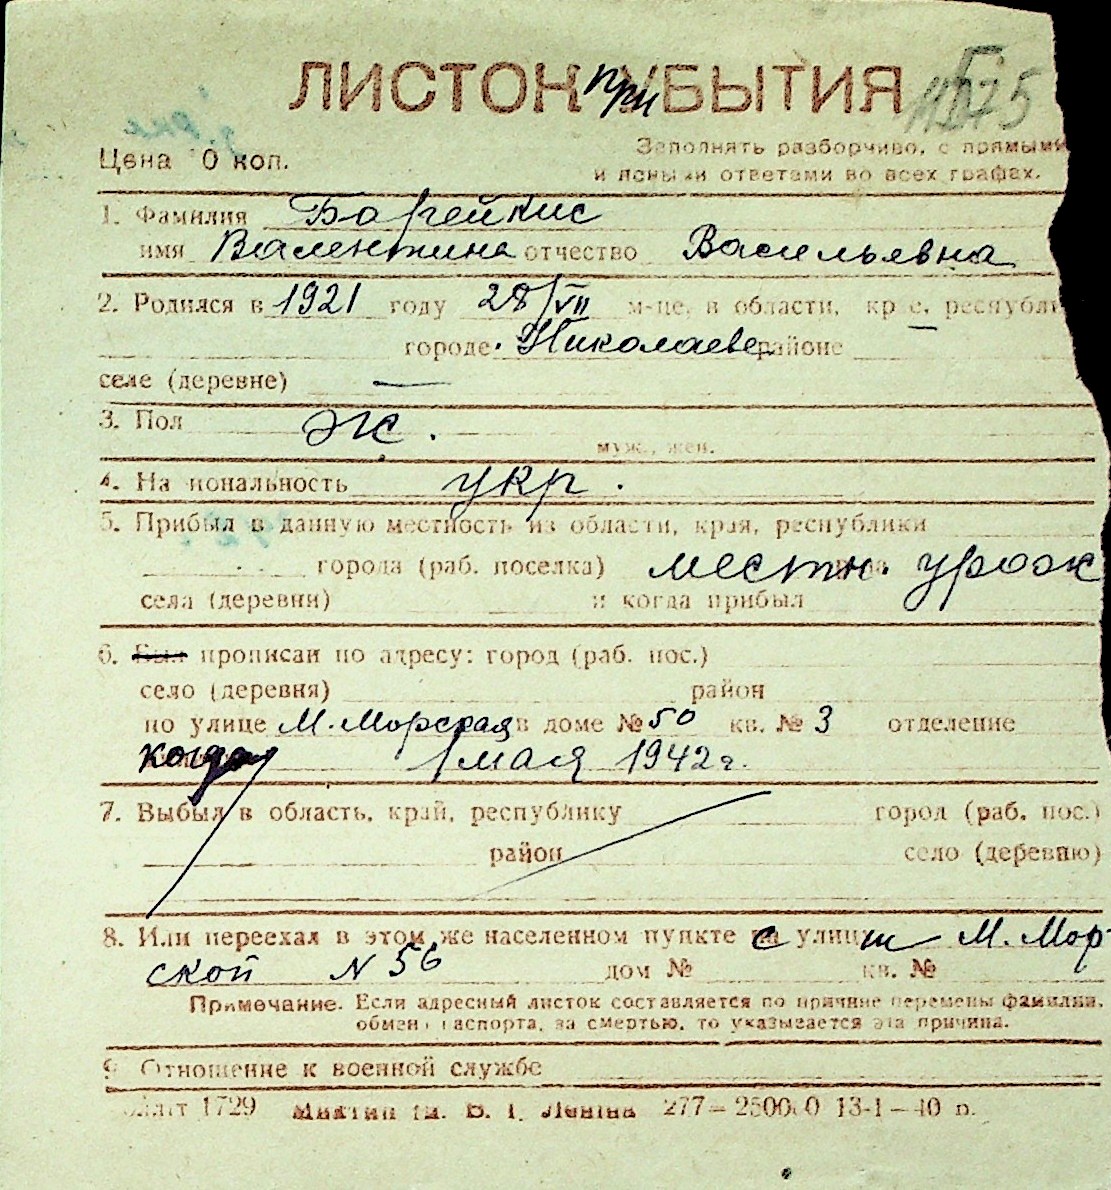 ЛИСТОК при УБЫТИЯ
Цена 0 коп.
Заполнять разборчиво, с прямыми
и ясными ответами во всех графах.
1. Фамилия Барейкис
имя Валентина отчество Васильевна
2. Родился в 1921 году 28/VII м-це, в области, кр е, республи
городе Николаеве районе
селе (деревне) —
3. Пол Ж.
муж., жен.
4. На иональность укр.
5. Прибыл в данную местность из области, края, республики
города (раб. поселка) местн. урож
села (деревни) и когда прибыл
6. Был прописан по адресу: город (раб. пос.)
село (деревня) район
по улице М. Морская в доме № 50 кв. № 3 отделение
когда 1 мая 1942 г.
7. Выбыл в область, край, республику город (раб. пос.)
район село (деревню)
8. Или переехал в этом же населенном пункте с улицы М. Мор
ской N 56 дом № кв. №
Примечание. Если адресный листок составляется по причине перемены фамилии,
обмен паспорта, за смертью, то указывается эта причина.
9. Отношение к военной службе
1729 Леніна 277— 13-I—40 р.